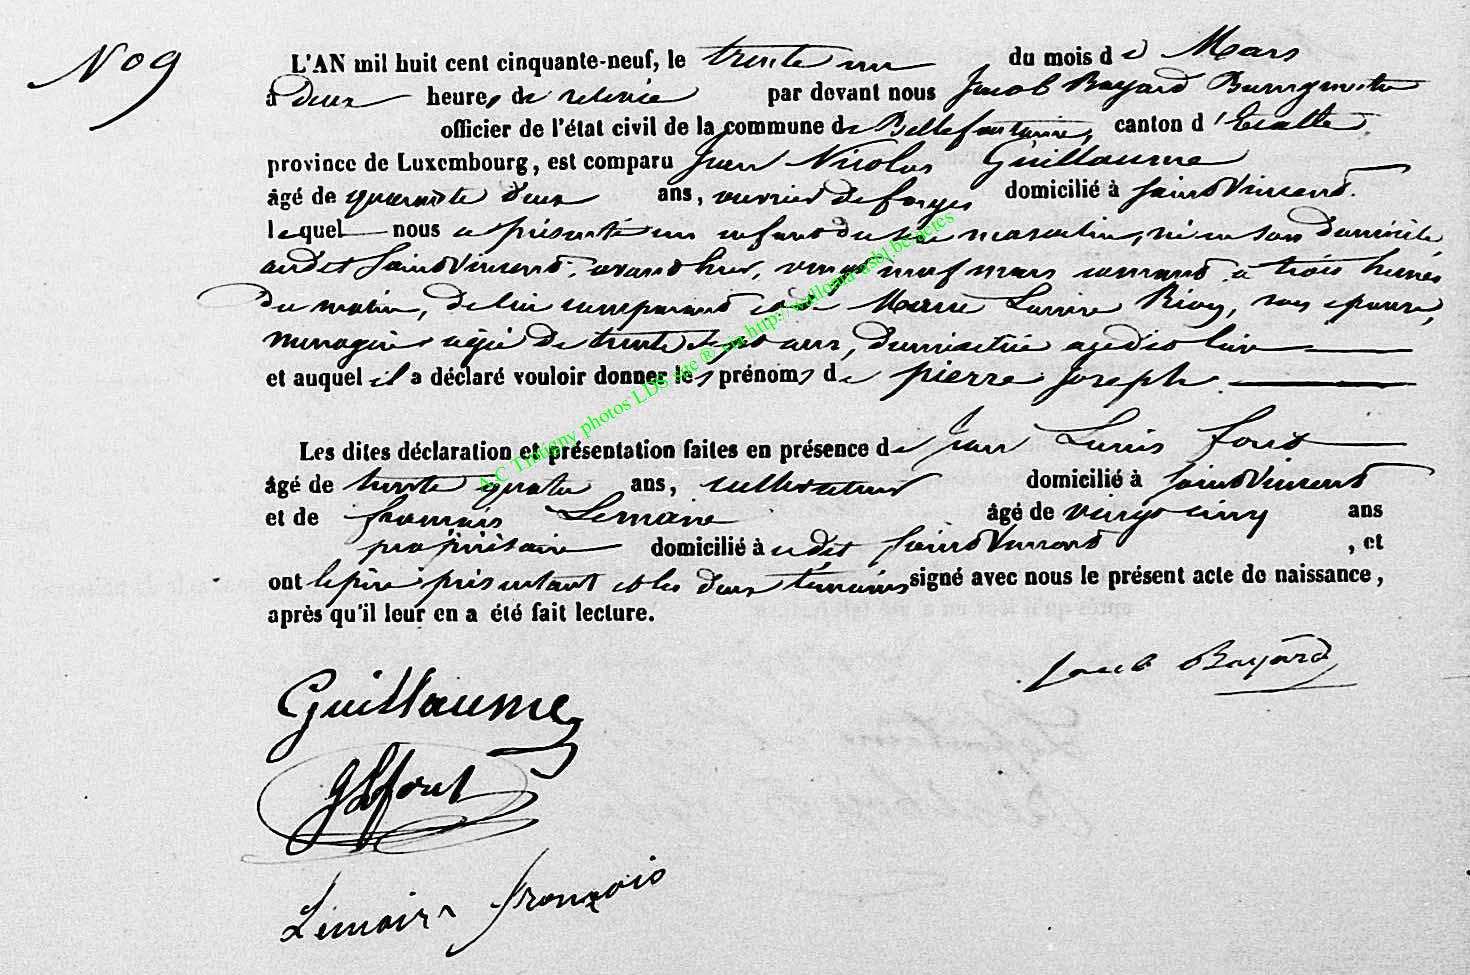 No 9
L'AN mil huit cent cinquante-neuf, le trente un du mois de Mars
à deux heures de relevée par devant nous Jacob Bayard Bourgmestre
officier de l'état civil de la commune de Bellefontaine, canton d'Etalle
province de Luxembourg, est comparu Jean Nicolas Guillaume
âgé de quarante deux ans, ouvrier de forges domicilié à Saint Vincent.
lequel nous a présenté un enfant du sexe masculin, né en son domicile
audit Saint Vincent, avant hier, vingt neuf mars courant à trois heures
du matin, de lui comparant et de Marie Lucie, son épouse,
ménagère âgée de trente sept ans, domiciliée audit lieu
et auquel il a déclaré vouloir donner les prénoms de pierre Joseph.
Les dites déclaration et présentation faites en présence de Jean Louis font
âgé de trente quatre ans, cultivateur domicilié à Saint Vincent
et de françois Lemaire âgé de vingt cinq ans
propriétaire domicilié à udit Saint Vincent, et
ont le père présentant et les deux témoins signé avec nous le présent acte de naissance,
après qu'il leur en a été fait lecture.
Jacob Bayard
Guillaume
JLfont
Lemaire françois
A.C Tintigny photos LDS site ® via http://wallonia-asbl.be/actes